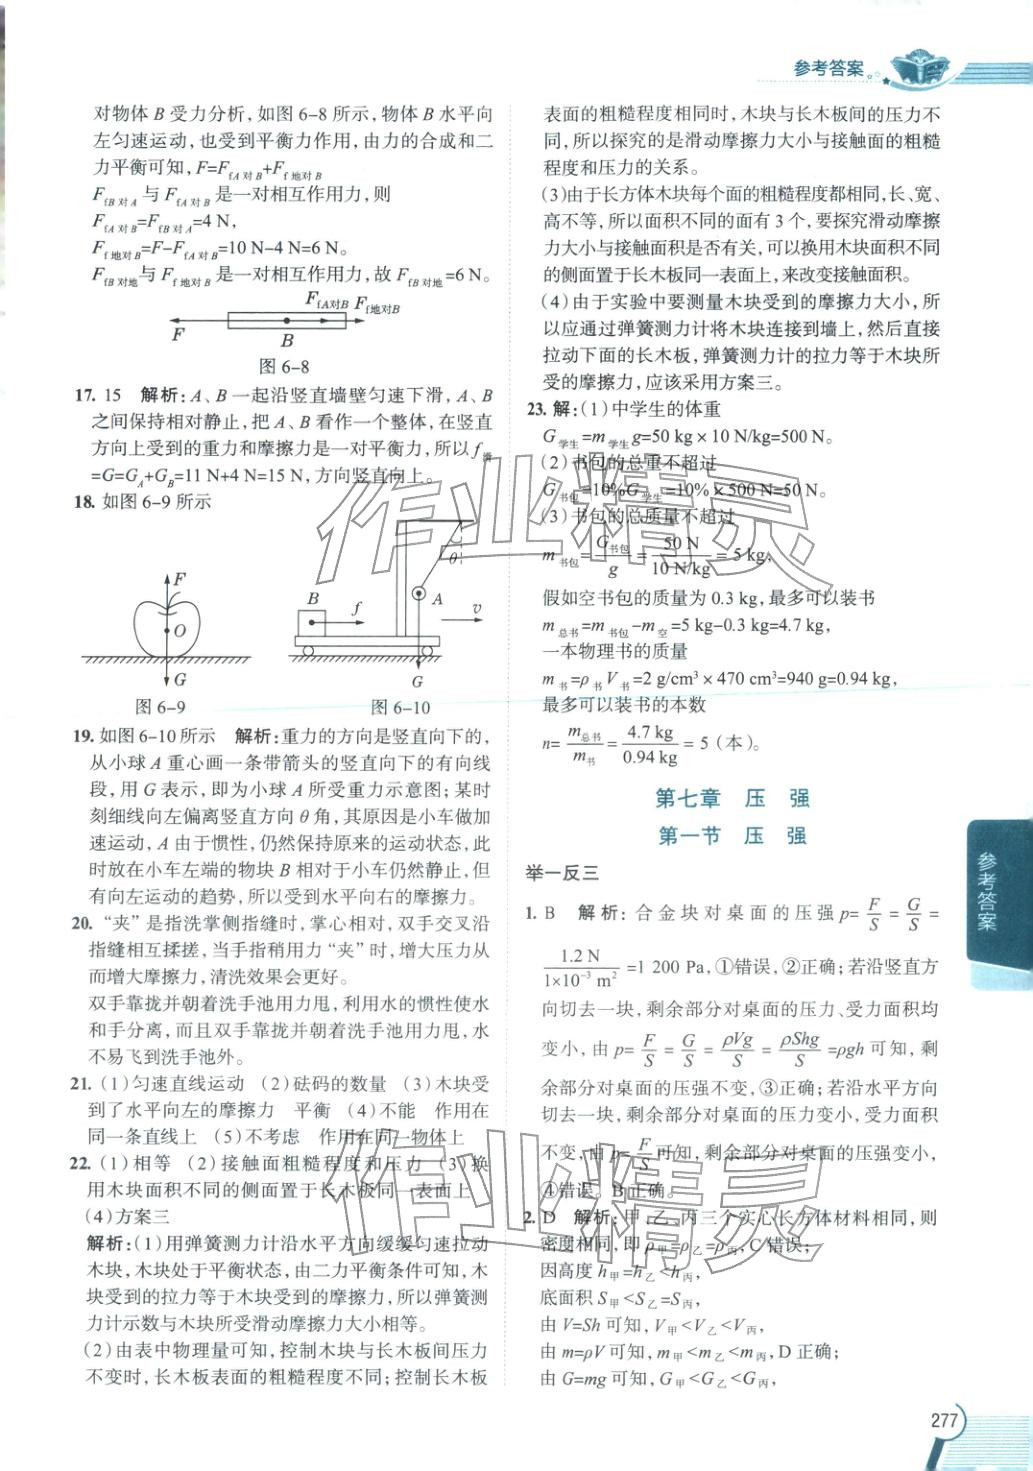 参考答案
对物体 B 受力分析，如图 6-8 所示，物体 B 水平向
左匀速运动，也受到平衡力作用，由力的合成和二
力平衡可知，F=F fA 对 B+F f 地对 B
F fB 对 A 与 F fA 对 B 是一对相互作用力，则
F fA 对 B=F fB 对 A=4 N，
F f 地对 B=F-F fA 对 B=10 N-4 N=6 N。
F fB 对地与 F f 地对 B 是一对相互作用力，故 F fB 对地=6 N。
F fA对B F f地对B
F B
图 6-8
17. 15 解析：A、B 一起沿竖直墙壁匀速下滑，A、B
之间保持相对静止，把 A、B 看作一个整体，在竖直
方向上受到的重力和摩擦力是一对平衡力，所以 f 滑
=G=G A+G B=11 N+4 N=15 N，方向竖直向上。
18. 如图 6-9 所示
F
O
G
图 6-9
θ
B f A v
G
图 6-10
19. 如图 6-10 所示 解析：重力的方向是竖直向下的，
从小球 A 重心画一条带箭头的竖直向下的有向线
段，用 G 表示，即为小球 A 所受重力示意图；某时
刻细线向左偏离竖直方向 θ 角，其原因是小车做加
速运动，A 由于惯性，仍然保持原来的运动状态，此
时放在小车左端的物块 B 相对于小车仍然静止，但
有向左运动的趋势，所以受到水平向右的摩擦力。
20. “夹”是指洗掌侧指缝时，掌心相对，双手交叉沿
指缝相互揉搓，当手指稍用力“夹”时，增大压力从
而增大摩擦力，清洗效果会更好。
双手靠拢并朝着洗手池用力甩，利用水的惯性使水
和手分离，而且双手靠拢并朝着洗手池用力甩，水
不易飞到洗手池外。
21. (1)匀速直线运动 (2)砝码的数量 (3)木块受
到了水平向左的摩擦力 平衡 (4)不能 作用在
同一条直线上 (5)不考虑 作用在同一物体上
22. (1)相等 (2)接触面粗糙程度和压力 (3)换
用木块面积不同的侧面置于长木板同一表面上
(4)方案三
解析：(1)用弹簧测力计沿水平方向缓缓匀速拉动
木块，木块处于平衡状态，由二力平衡条件可知，木
块受到的拉力等于木块受到的摩擦力，所以弹簧测
力计示数与木块所受滑动摩擦力大小相等。
(2)由表中物理量可知，控制木块与长木板间压力
不变时，长木板表面的粗糙程度不同；控制长木板
表面的粗糙程度相同时，木块与长木板间的压力不
同，所以探究的是滑动摩擦力大小与接触面的粗糙
程度和压力的关系。
(3)由于长方体木块每个面的粗糙程度都相同，长、宽、
高不等，所以面积不同的面有 3 个，要探究滑动摩擦
力大小与接触面积是否有关，可以换用木块面积不同
的侧面置于长木板同一表面上，来改变接触面积。
(4)由于实验中要测量木块受到的摩擦力大小，所
以应通过弹簧测力计将木块连接到墙上，然后直接
拉动下面的长木板，弹簧测力计的拉力等于木块所
受的摩擦力，应该采用方案三。
23. 解：(1)中学生的体重
G 学生=m 学生 g=50 kg×10 N/kg=500 N。
(2)书包的总重不超过
G 书包=10%G 学生=10%×500 N=50 N。
(3)书包的总质量不超过
m 书包=G 书包/g=50 N/10 N/kg=5 kg，
假如空书包的质量为 0.3 kg，最多可以装书
m 总书=m 书包-m 空=5 kg-0.3 kg=4.7 kg，
一本物理书的质量
m 书=ρ 书 V 书=2 g/cm³×470 cm³=940 g=0.94 kg，
最多可以装书的本数
n=m 总书/m 书=4.7 kg/0.94 kg=5（本）。
第七章 压 强
第一节 压 强
举一反三
1. B 解析：合金块对桌面的压强 p=F/S=G/S=
1.2 N/1×10⁻³ m²=1 200 Pa，①错误，②正确；若沿竖直方
向切去一块，剩余部分对桌面的压力、受力面积均
变小，由 p=F/S=G/S=ρVg/S=ρShg/S=ρgh 可知，剩
余部分对桌面的压强不变，③正确；若沿水平方向
切去一块，剩余部分对桌面的压力变小，受力面积
不变，由 p=F/S 可知，剩余部分对桌面的压强变小，
④错误。B 正确。
2. D 解析：甲、乙、丙三个实心长方体材料相同，则
密度相同，即 ρ 甲=ρ 乙=ρ 丙，C 错误；
因高度 h 甲=h 乙<h 丙，
底面积 S 甲<S 乙=S 丙，
由 V=Sh 可知，V 甲<V 乙<V 丙，
由 m=ρV 可知，m 甲<m 乙<m 丙，D 正确；
由 G=mg 可知，G 甲<G 乙<G 丙，
参考答案
277
作业精灵
作业精灵